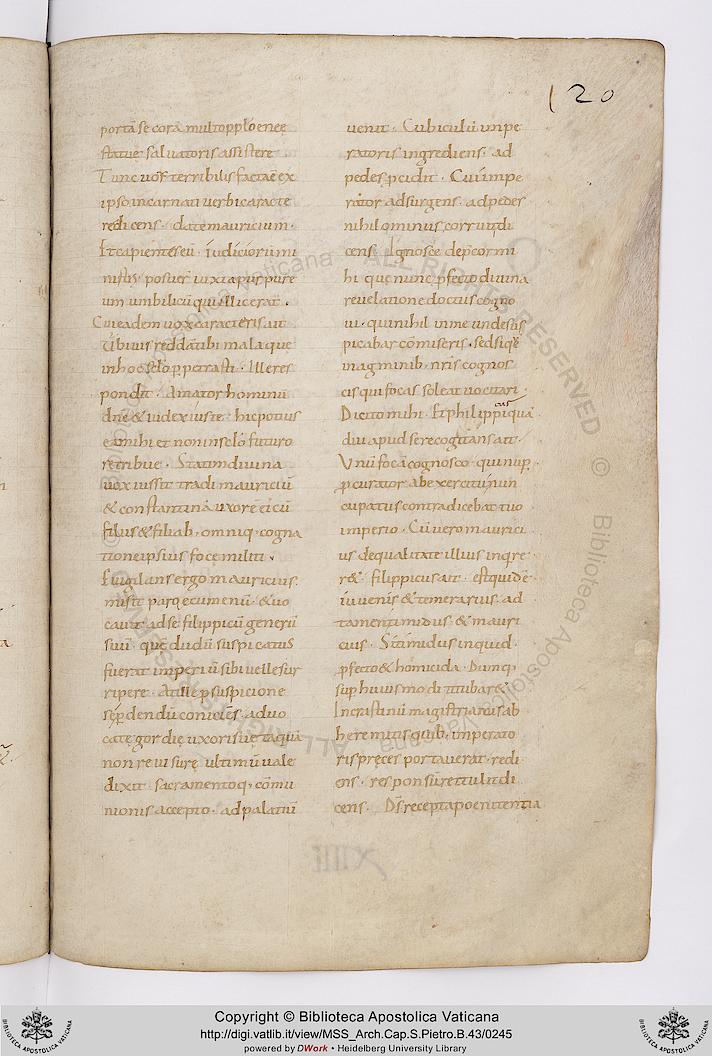 120
portā se corā multo pplo enee
statue salvatoris assistere
Tunc vox terribilis facta ē ex
ipso incarnati verbi caracte
re dicens. date mauricium.
Et capientes eū iudiciorū mi
nistri posuer iuxta purpure
um umbilicū qui illic erat.
Cui eadem vox caracteris ait
Ubi vis reddā tibi mala que
in hoc sclo ppetrasti. Ille res
pondit. Amator hominū
dne & iudex iuste. hic potius
ea mihi et non in sclo futuro
retribue. Statim divina
vox iussit tradi mauriciū
& constantinā uxorē ei cū
filiis & filiab; omniq; cogna
tione ipsius foce militi.
Evigilans ergo mauricius.
misit paro ecumenū & vo
cavit ad se filippicū generū
suū quē dudū suspicatus
fuerat imperiū sibi velle sur
ripere. At ille p suspicione
sēp dendū coniciēs. advo
cate gordie uxori sue tāquā
non revisure ultimū vale
dixit. sacramentoq; cōmu
nionis accepto. ad palatiū
venit. Cubiculū impe
ratoris ingrediens. ad
pedes pcidit. Cui impe
rator adsurgens. ad pedes
nihilominus corruit di
cens. Ignosce deprcor mi
hi que nunc pfecto divina
revelatione doctus cogno
vi. qui nihil in me unde susp
picabar cōmiseris. sed si quē
inagminib; nris cognos
cis qui focas soleat vocitari.
Dicito mihi. Et philippicus quā
diu apud se recogitans ait.
Unū focā cognosco. qui nup
pcurator ab exercitu nun
cupatus contradicebat tuo
imperio. Cū vero maurici
us de qualitate illius inqre
r&. filippicus ait. est quidē
iuvenis & temerarius. ad
tamen timidus. & mauri
cius. Si timidus inquid.
pfecto & homicida. Dumq;
sup huiusmodi titubar&.
Incristinū magistrianus ab
heremitis quib; imperato
ris preces portaverat. redi
ens. responsū rettulit di
cens. Ds recepta poenitentia
Copyright © Biblioteca Apostolica Vaticana
http://digi.vatlib.it/view/MSS_Arch.Cap.S.Pietro.B.43/0245
powered by DWork • Heidelberg University Library